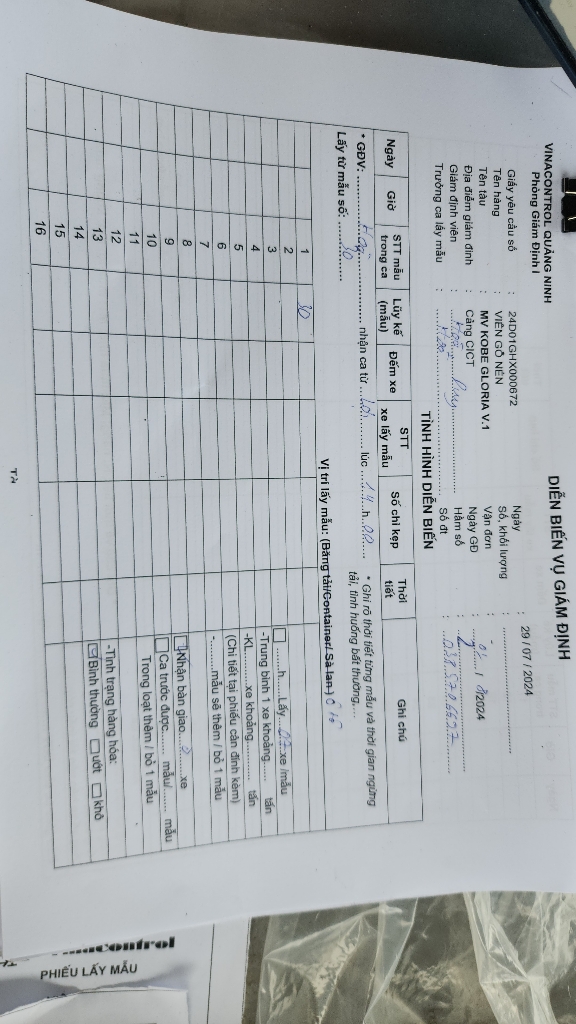 VINACONTROL QUẢNG NINH
Phòng Giám Định I
DIỄN BIẾN VỤ GIÁM ĐỊNH
Giấy yêu cầu số : 24D01GHX000672
Ngày : 29 / 07 / 2024
Tên hàng : VIÊN GỖ NÉN
Số, khối lượng : ....................
Tên tàu : MV KOBE GLORIA V.1
Vận đơn :
Địa điểm giám định : Cảng CICT
Ngày GĐ : / 2024
Giám định viên :
Hầm số :
Trưởng ca lấy mẫu :
Số đt :
TÌNH HÌNH DIỄN BIẾN
Ngày Giờ STT mẫu trong ca Lũy kế (mẫu) Đếm xe STT xe lấy mẫu Số chì kẹp Thời tiết Ghi chú
* GĐV: .................... nhận ca từ .......... lúc ...14...h...00...
* Ghi rõ thời tiết từng mẫu và thời gian ngừng tải, tình huống bất thường,...
Lấy từ mẫu số: ......30......
Vị trí lấy mẫu: (Băng tải/Container/ Sà lan )
1 30
2 ......h......Lấy......xe /mẫu
3 -Trung bình 1 xe khoảng...... tấn
4 -KL......xe khoảng......... tấn
5 (Chi tiết tại phiếu cân đính kèm)
6 -......mẫu sẽ thêm / bỏ 1 mẫu
7
8 Nhận bàn giao.........xe
9 Ca trước được...... mẫu/...... mẫu
10 Trong loạt thêm / bỏ 1 mẫu
11
12 -Tình trạng hàng hóa:
13 Bình thường ướt khô
14
15
16
Vinacontrol
PHIẾU LẤY MẪU